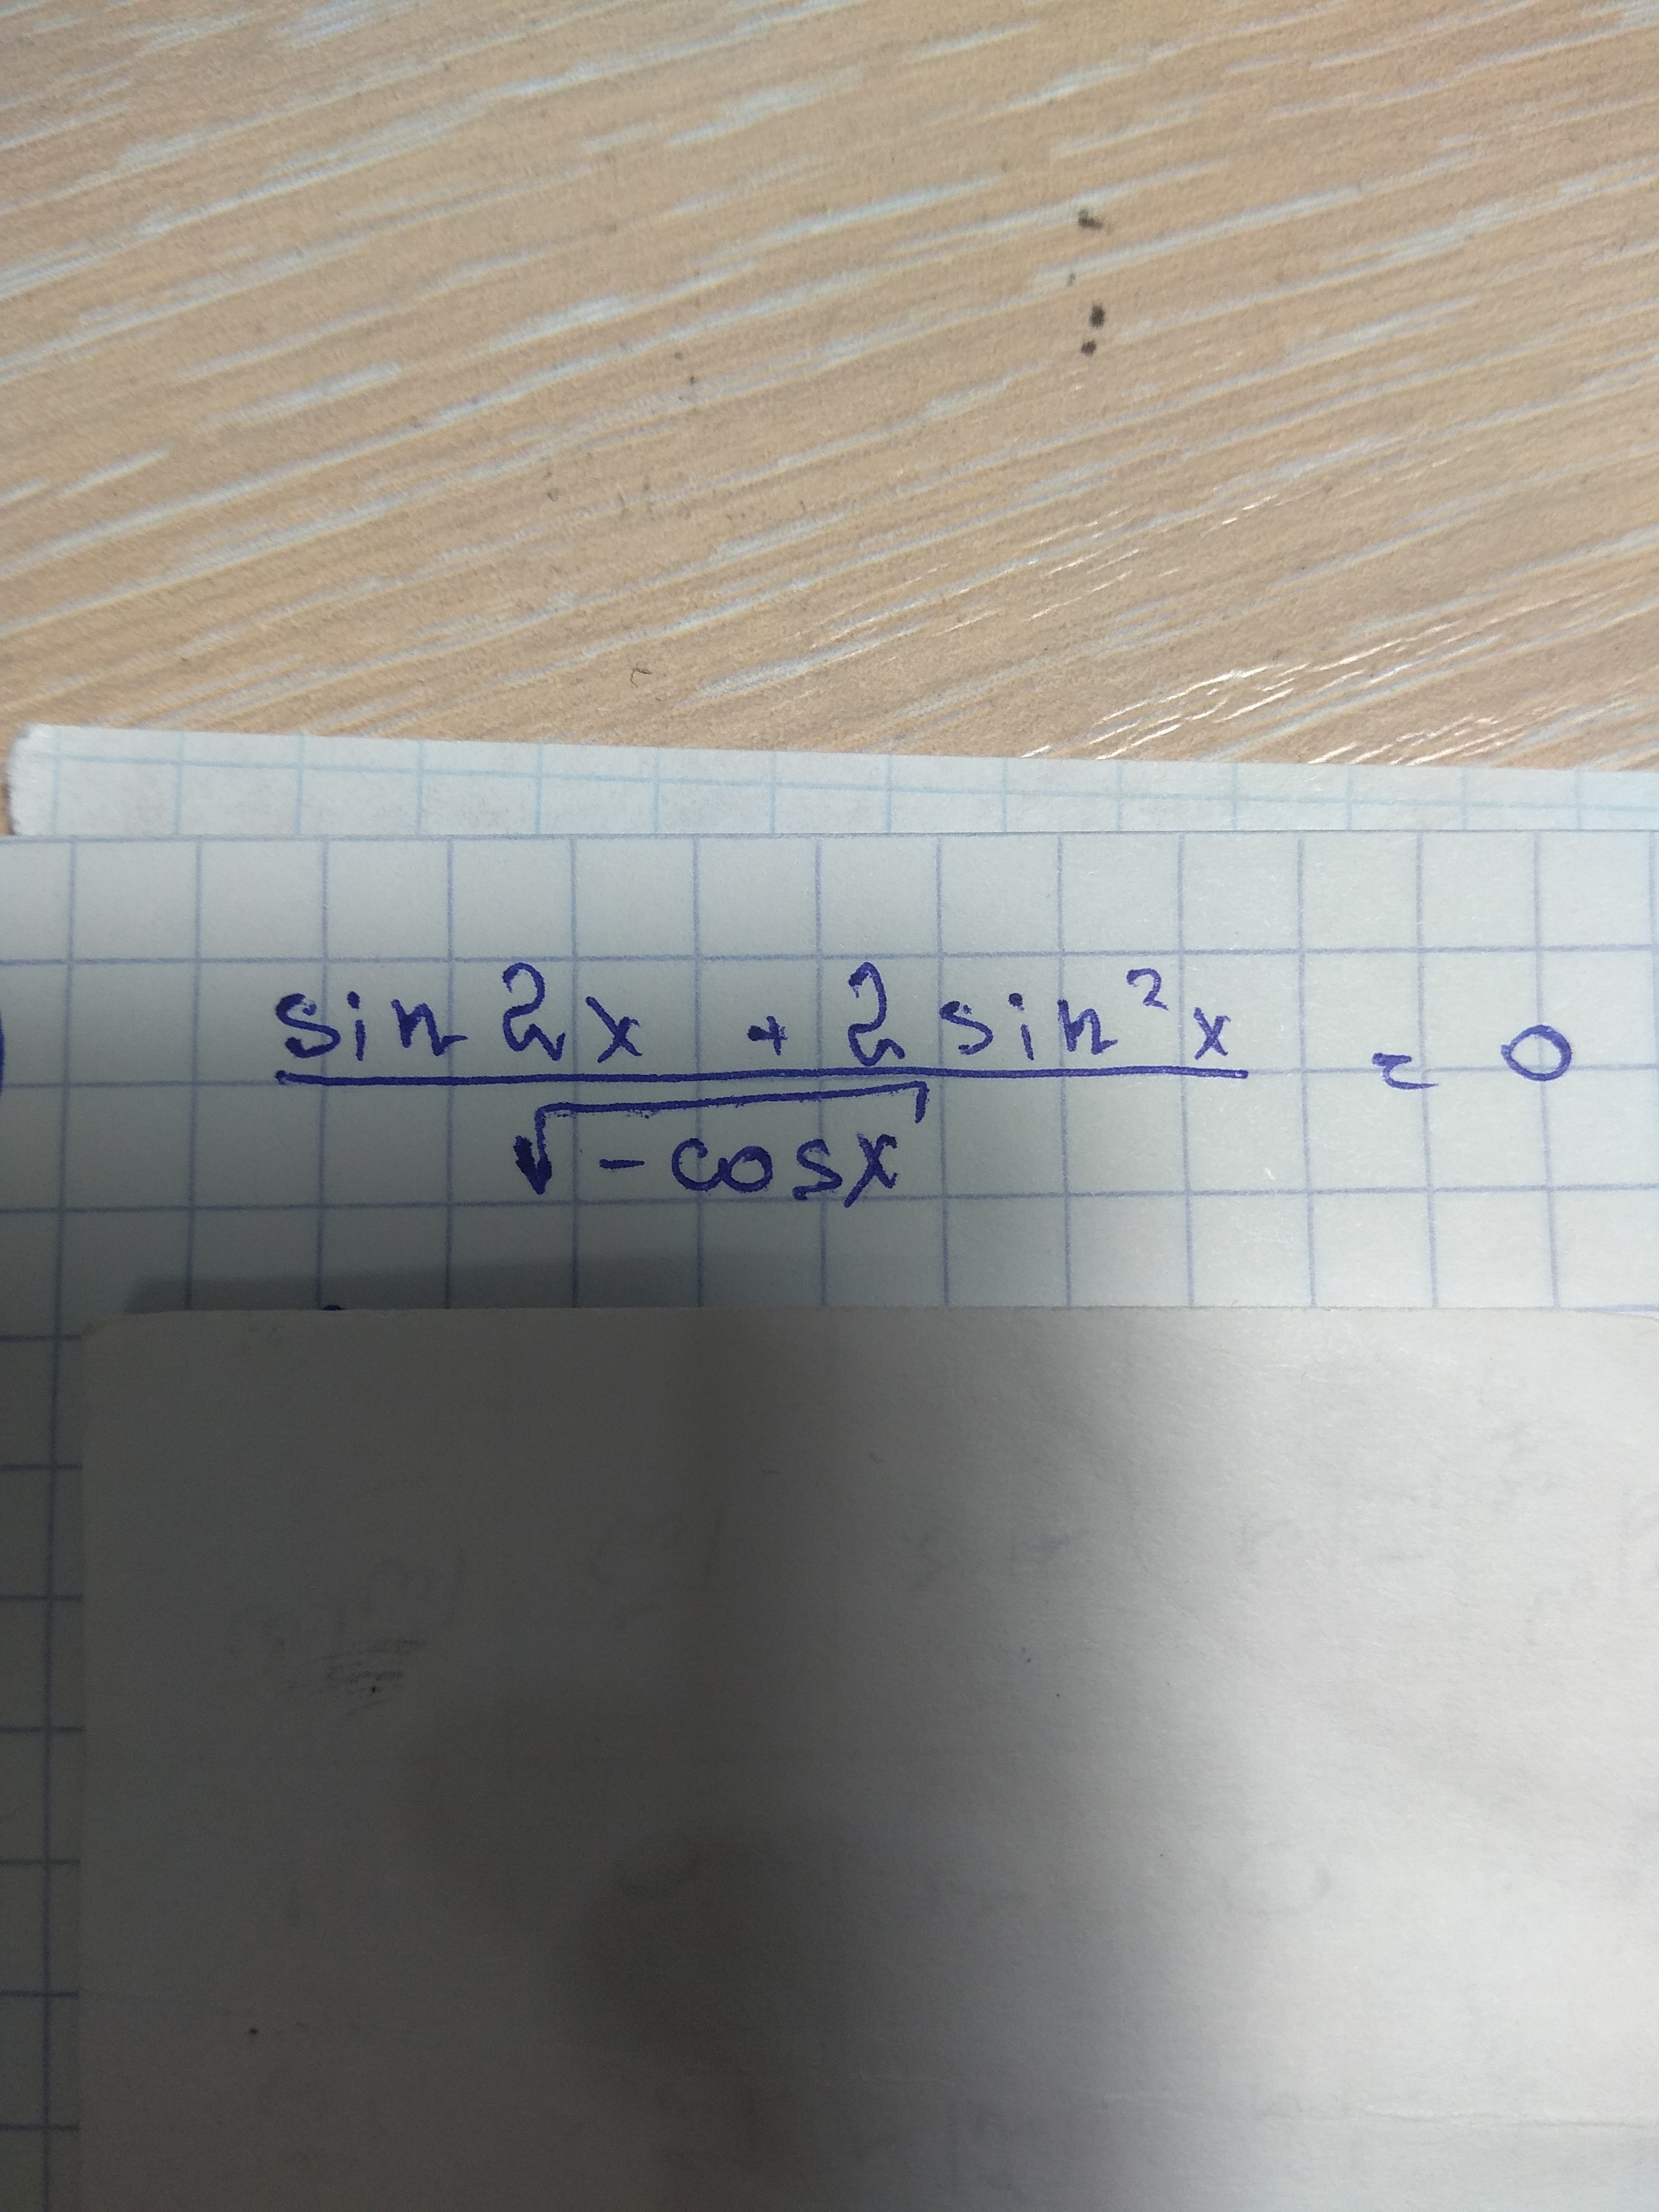 sin 2x + 2 sin²x = 0
√-cosx